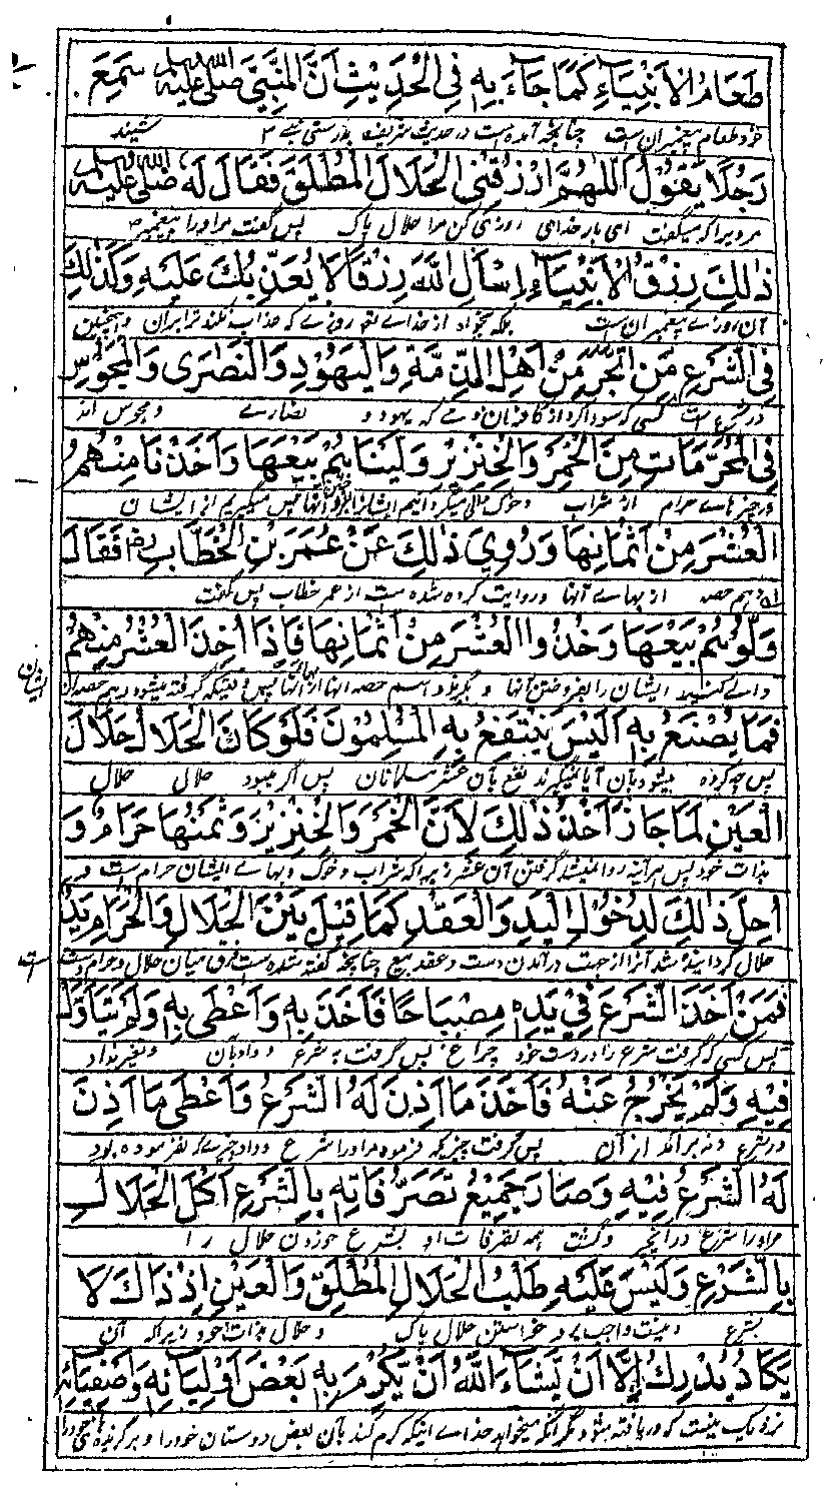 طَعَامُ الْاَنْبِيَاءِ كَمَا جَاءَ بِهٖ فِي الْحَدِيْثِ اَنَّ النَّبِيَّ صَلَّى اللهُ عَلَيْهِ وَسَلَّمَ سَمِعَ
خود طعام پیغمبران است چنانچه آمده است در حدیث شریف بدرستی نبی شنید
رَجُلًا يَقُوْلُ اَللّٰهُمَّ ارْزُقْنِي الْحَلَالَ الْمُطْلَقَ فَقَالَ لَهٗ صَلَّى اللهُ عَلَيْهِ وَسَلَّمَ
مردیرا که میگفت ای بار خدای روزی کن مرا حلال پاک پس گفت مر اورا پیغمبر
ذٰلِكَ رِزْقُ الْاَنْبِيَاءِ اِسْاَلِ اللهَ رِزْقًا لَا يُعَذِّبُكَ عَلَيْهِ وَكَذٰلِكَ
آن روزی پیغمبران است بلکه بخواه از خدای تعم روزی که عذاب نکند ترا بران و همچنین
فِي الشَّرْعِ مَنِ اتَّجَرَ مِنْ اَهْلِ الذِّمَّةِ وَالْيَهُوْدِ وَالنَّصٰرٰى وَالْمَجُوْسِ
در شرع است کسی که سوداگرد از کافران ذمی که یهود و نصاری و مجوس اند
فِي الْمُحَرَّمَاتِ مِنَ الْخَمْرِ وَالْخِنْزِيْرِ وَلَّيْنَاهُمْ بَيْعَهَا وَاَخَذْنَا مِنْهُمُ
در چیزهای حرام از شراب و خوک والی میگردانیم ایشانرا آنها پس میگیریم از ایشان
الْعُشْرَ مِنْ اَثْمَانِهَا وَرُوِيَ ذٰلِكَ عَنْ عُمَرَ بْنِ الْخَطَّابِ رض فَقَالَ
دهم حصه از بهای آنها و روایت کرده شده است از عمر خطاب پس گفت
وَلُّوْهُمْ بَيْعَهَا وَخُذُوا الْعُشْرَ مِنْ اَثْمَانِهَا فَاِذَا اُخِذَ الْعُشْرُ مِنْهُمْ
والی کنید ایشان را بفروختن آنها و بگیرید دهم حصه آنها از بهای آنها پس وقتیکه گرفته میشود دهم حصه از
ایشان
فَمَا يُصْنَعُ بِهٖ اَلَيْسَ يَنْتَفِعُ بِهِ الْمُسْلِمُوْنَ فَلَوْ كَانَ الْحَلَالُ حَلَالَ
پس چه کرده میشود بآن آیا نمیگیرند نفع بآن عشر مسلمانان پس اگر میبود حلال حلال
الْعَيْنِ لَمَا جَازَ اَخْذُ ذٰلِكَ لِاَنَّ الْخَمْرَ وَالْخِنْزِيْرَ وَثَمَنَهَا حَرَامٌ وَ
بذات خود پس هر آینه روا نمیشد گرفتن آن عشر زیرا که شراب و خوک و بهای ایشان حرام است و
اُحِلَّ ذٰلِكَ لِدُخُوْلِ الْيَدِ وَالْعَقْدِ كَمَا قِيْلَ بَيْنَ الْحَلَالِ وَالْحَرَامِ يَدٌ
حلال گردانیده شد آنرا از جهت درآمدن دست و عقد بیع چنانچه گفته شده است فرق میان حلال و حرام دست
است
فَمَنْ اَخَذَ الشَّرْعَ فِيْ يَدِهٖ مِصْبَاحًا فَاَخَذَ بِهٖ وَاَعْطٰى بِهٖ وَلَمْ يَتَاَوَّلْ
پس کسی که گرفت شرع را در دست خود چراغ پس گرفت به شرع و داد بآن و تغیر نداد
فِيْهِ وَلَمْ يَخْرُجْ عَنْهُ فَاَخَذَ مَا اَذِنَ لَهُ الشَّرْعُ وَاَعْطٰى مَا اَذِنَ
در شرع و نه برآمد از آن پس گرفت چیزیکه فرموده مر اورا شرع و داد چیزیکه فرموده بود
لَهُ الشَّرْعُ فِيْهِ وَصَارَ جَمِيْعُ تَصَرُّفَاتِهٖ بِالشَّرْعِ اَكَلَ الْحَلَالَ
مر اورا شرع در آنچیز و گشت همه تصرفات او بشرع خوردن حلال را
بِالشَّرْعِ وَلَيْسَ عَلَيْهِ طَلَبُ الْحَلَالِ الْمُطْلَقِ وَالْعَيْنِ اِذْ ذَاكَ لَا
بشرع و نیست واجب بر وی خواستن حلال پاک و حلال بذات خود زیرا که آن
يَكَادُ يُدْرَكُ اِلَّا اَنْ يَّشَاءَ اللهُ اَنْ يُّكْرِمَ بِهٖ بَعْضَ اَوْلِيَائِهٖ وَاَصْفِيَائِهٖ
نزدیک نیست که دریافته شود مگر آنکه میخواهد خدای اینکه کرم کند بآن بعض دوستان خود را و برگزیده های خود را